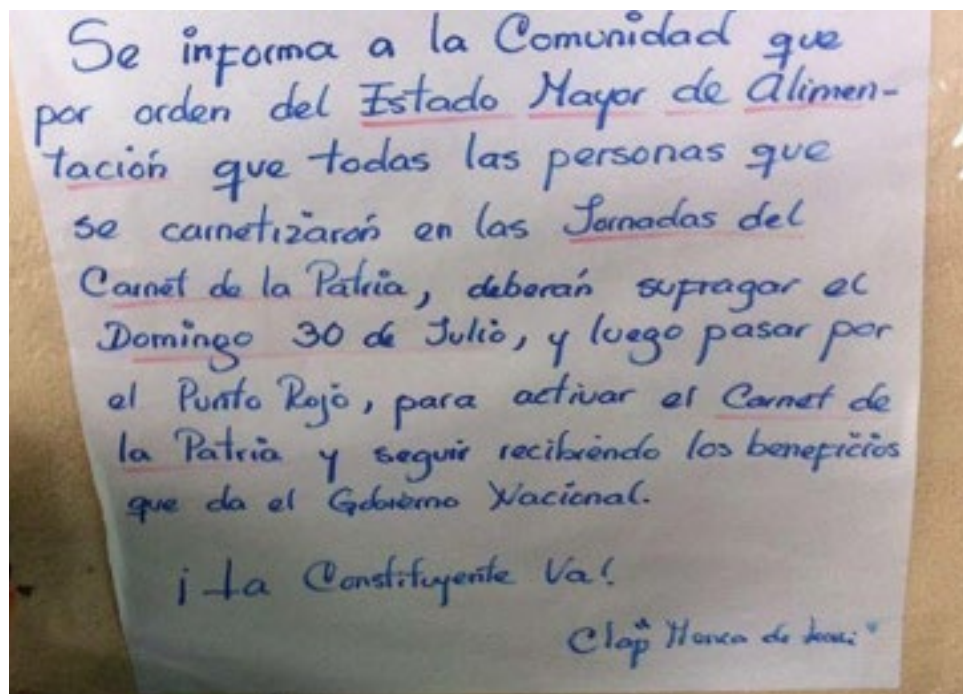 Se informa a la Comunidad que
por orden del Estado Mayor de Alimen-
tación que todas las personas que
se carnetizarón en las Jornadas del
Carnet de la Patria, deberán sufragar el
Domingo 30 de Julio, y luego pasar por
el Punto Rojo, para activar el Carnet de
la Patria y seguir recibiendo los beneficios
que da el Gobierno Nacional.
¡La Constituyente Va!
Clap de